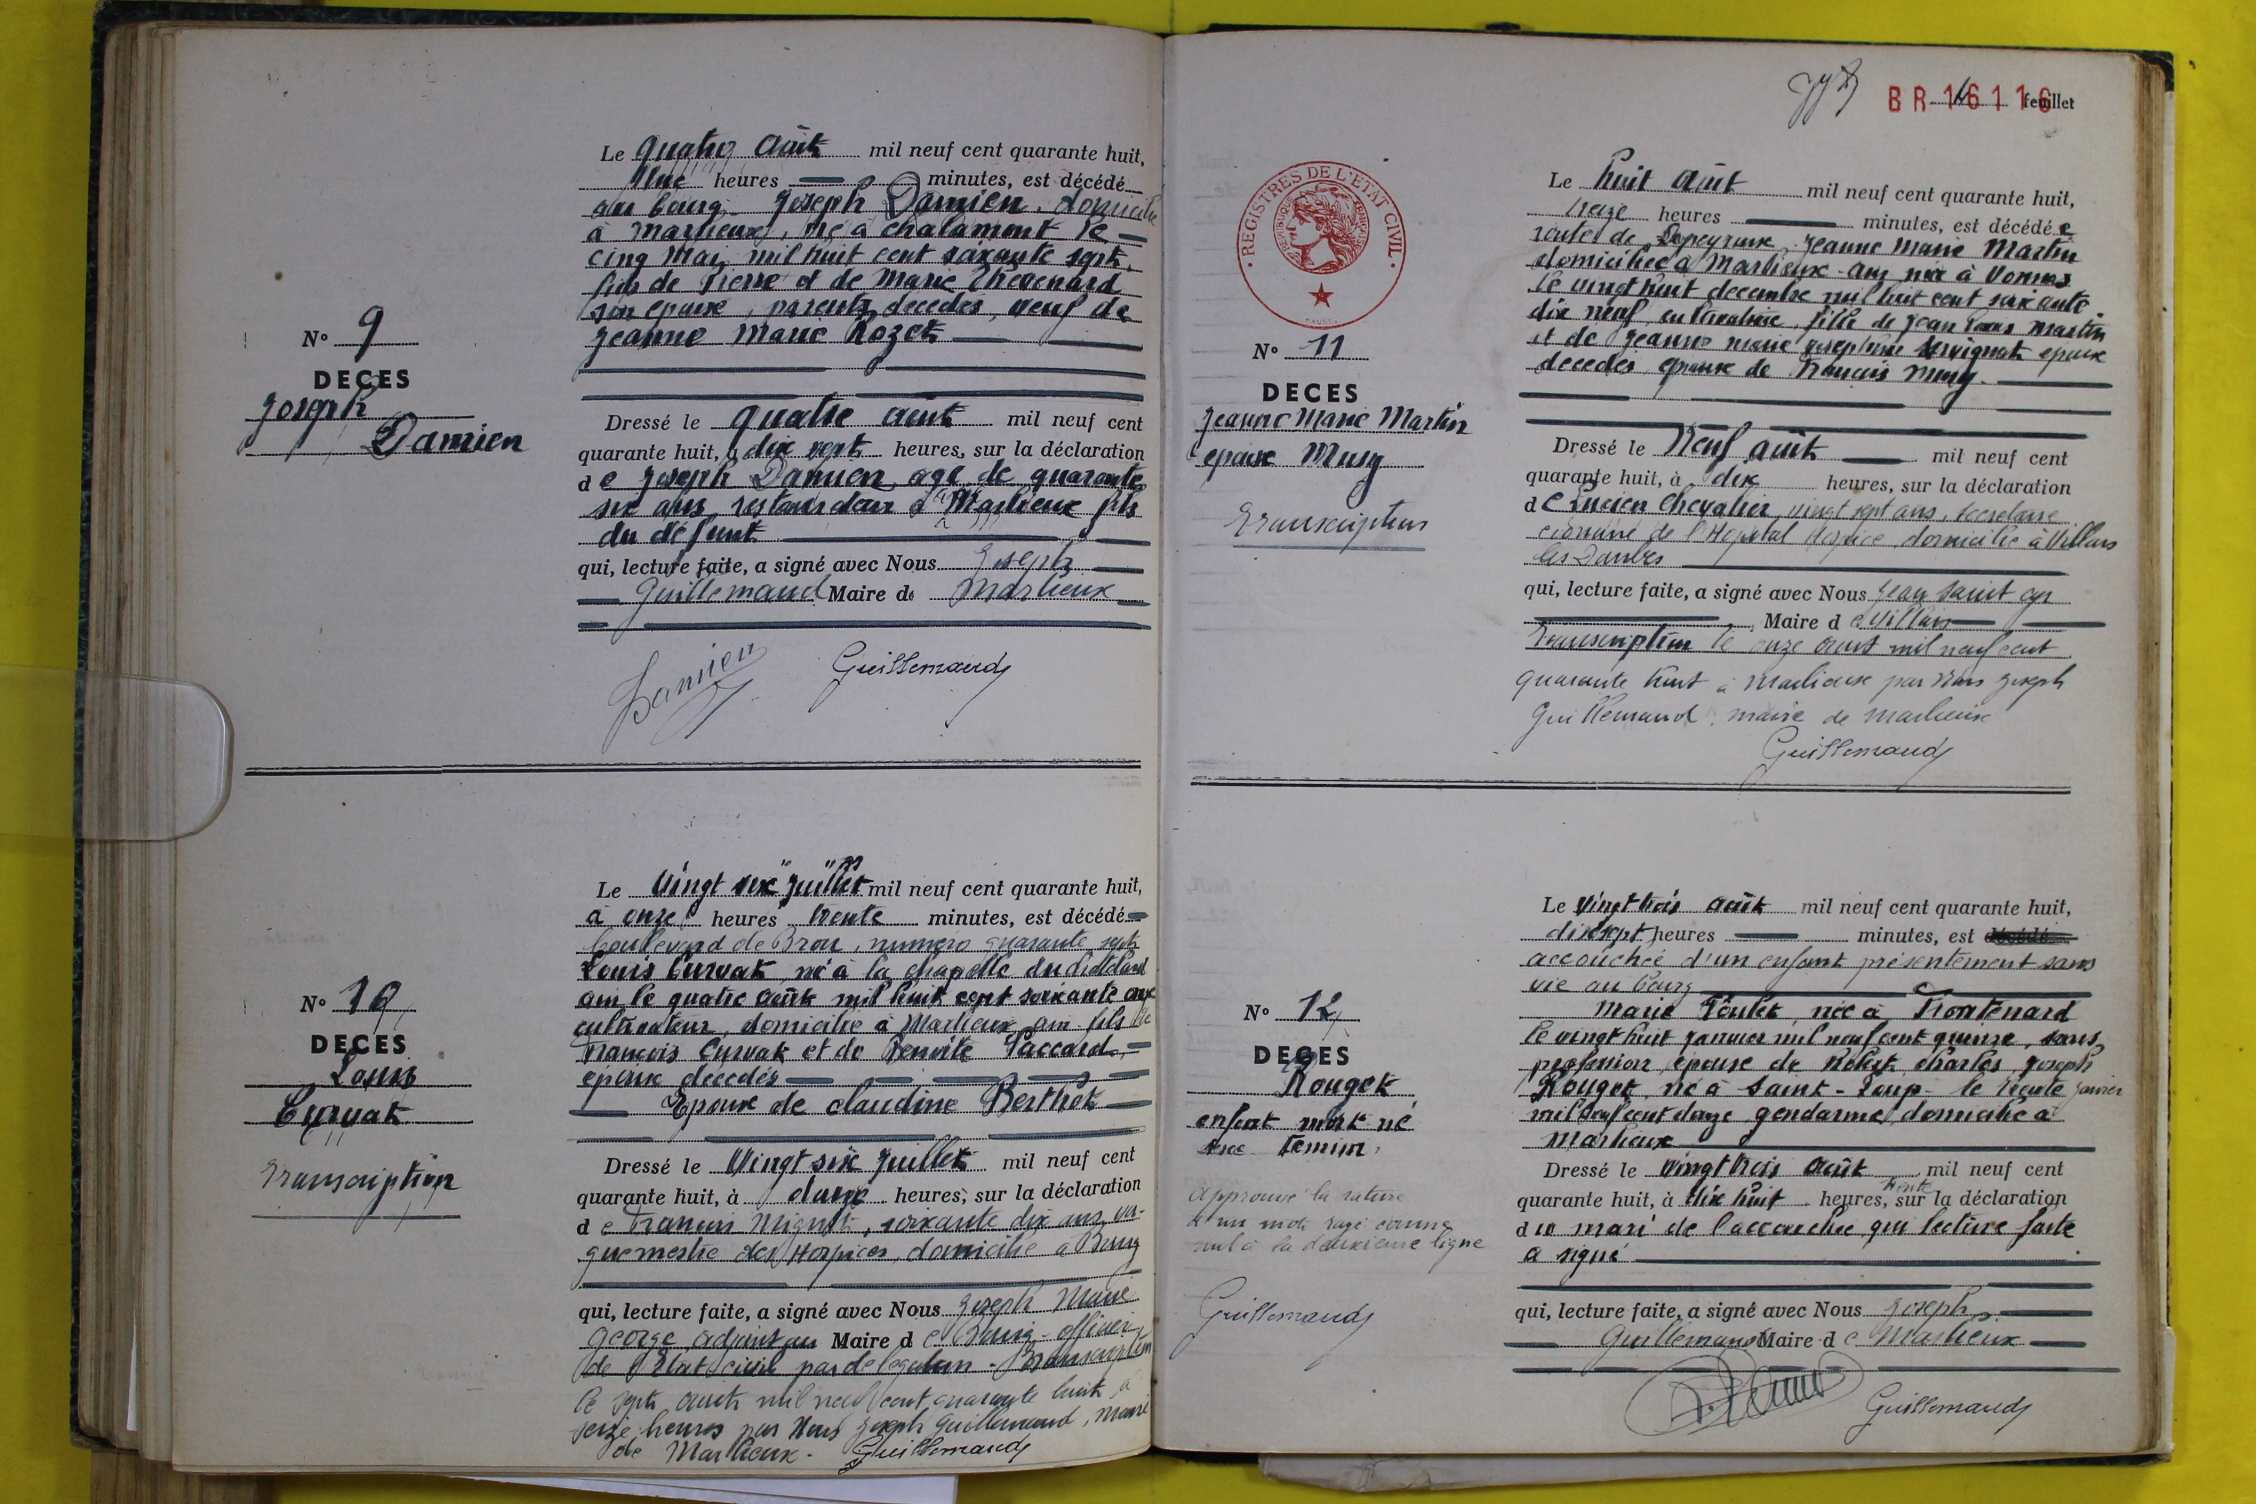 Le quatre août mil neuf cent quarante huit,
une heures minutes, est décédé
au bourg Joseph Damien. domicilié
à Marlieux, né à Chalamont le
cinq mai mil huit cent soixante sept.
fils de Pierre et de Marie Thévenard
son épouse, parents décédés, veuf de
Jeanne Marie Rozet
N° 9
DECES
Joseph
Damien
Dressé le quatre août mil neuf cent
quarante huit, à dix sept heures, sur la déclaration
de Joseph Damien, age de quarante
six ans, restaurateur à Marlieux fils
du défunt
qui, lecture faite, a signé avec Nous Joseph
Guillemaud Maire de Marlieux
Damien Guillemaud
Le Vingt six juillet mil neuf cent quarante huit,
à onze heures trente minutes, est décédé
boulevard de Brou, numéro quarante sept
Louis Curvat né à la chapelle du Chatelard
ain le quatre août mil huit cent soixante onze
cultivateur, domicilié à Marlieux ain fils de
Francois Curvat et de Benoite Paccard
époux décédés
Epoux de claudine Berthet
N° 10
DECES
Louis
Curvat
Transcription
Dressé le Vingt six juillet mil neuf cent
quarante huit, à douze heures, sur la déclaration
de Francois Mignot, soixante dix ans, va-
guemestre des Hospices, domicilié à Bourg
qui, lecture faite, a signé avec Nous Joseph Marie
George adjoint au Maire de Bourg officier
de l'Etat civil par délégation - Transcription
le sept août mil neuf cent quarante huit à
seize heures par Nous Joseph Guillemaud, maire
de Marlieux - Guillemaud
BR 16116 feuillet
REGISTRES DE L'ETAT CIVIL
Le huit août mil neuf cent quarante huit,
treize heures minutes, est décédée
route de Jeanne Marie Martin
domiciliée à Marlieux ain née à Vonnas
le vingt huit decembre mil huit cent soixante
dix neuf, fille de Jean Louis Martin
et de Jeanne Marie Josephine Servignat epoux
décédés épouse de Francois Musy.
N° 11
DECES
Jeanne Marie Martin
epouse Musy
Transcription
Dressé le Neuf août mil neuf cent
quarante huit, à dix heures, sur la déclaration
de Lucien Chevalier, vingt sept ans, secretaire
économe de l'Hopital Hospice domicilié à Villars
les Dombes
qui, lecture faite, a signé avec Nous Jean Saint Cyr
Maire de Villars
Transcription le onze août mil neuf cent
quarante huit à Marlieux par Nous Joseph
Guillemaud, maire de Marlieux
Guillemaud
Le vingt trois août mil neuf cent quarante huit,
dix sept heures minutes, est
accouchée d'un enfant présentement sans
vie au bourg
Marie née à Frontenard
le vingt huit janvier mil neuf cent quinze, sans
profession, épouse de Robert Charles Joseph
Rouget né à Saint-Loup le trente janvier
mil neuf cent douze gendarme, domicilié à
Marlieux
N° 12
DECES
Rouget
enfant mort né
sexe feminin
Approuvé la rature
d'un mot rayé comme
nul à la deuxieme ligne
Guillemaud
Dressé le vingt trois août mil neuf cent
quarante huit, à dix huit heures, trente sur la déclaration
du mari de l'accouchée qui lecture faite
a signé
qui, lecture faite, a signé avec Nous Joseph
Guillemaud Maire de Marlieux
Guillemaud